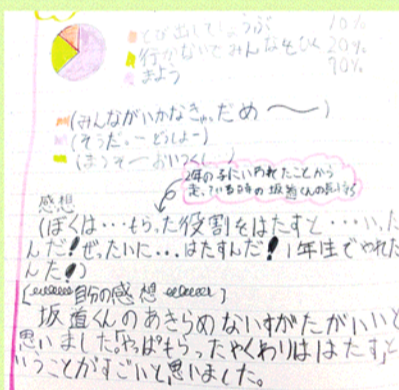 とび出してしょうぶ 10%
行かないでみんなをひく 20%
まよう 70%
(みんながいかなきゃ。だめ〜)
(そうだ。ーどうしよー)
(まっそーおいつくし)
2年の子にいわれたことから
走っている時の坂道くんの
感想
(ぼくは…もらった役割をはたすと…いった
んだ!ぜったいに...はたすんだ!1年生でやれた
んだ!)
[自分の感想]
坂道くんのあきらめないすがたがいいと
思いました。「やっぱもらったやくわりははたす」と
いうことがすごいと思いました。